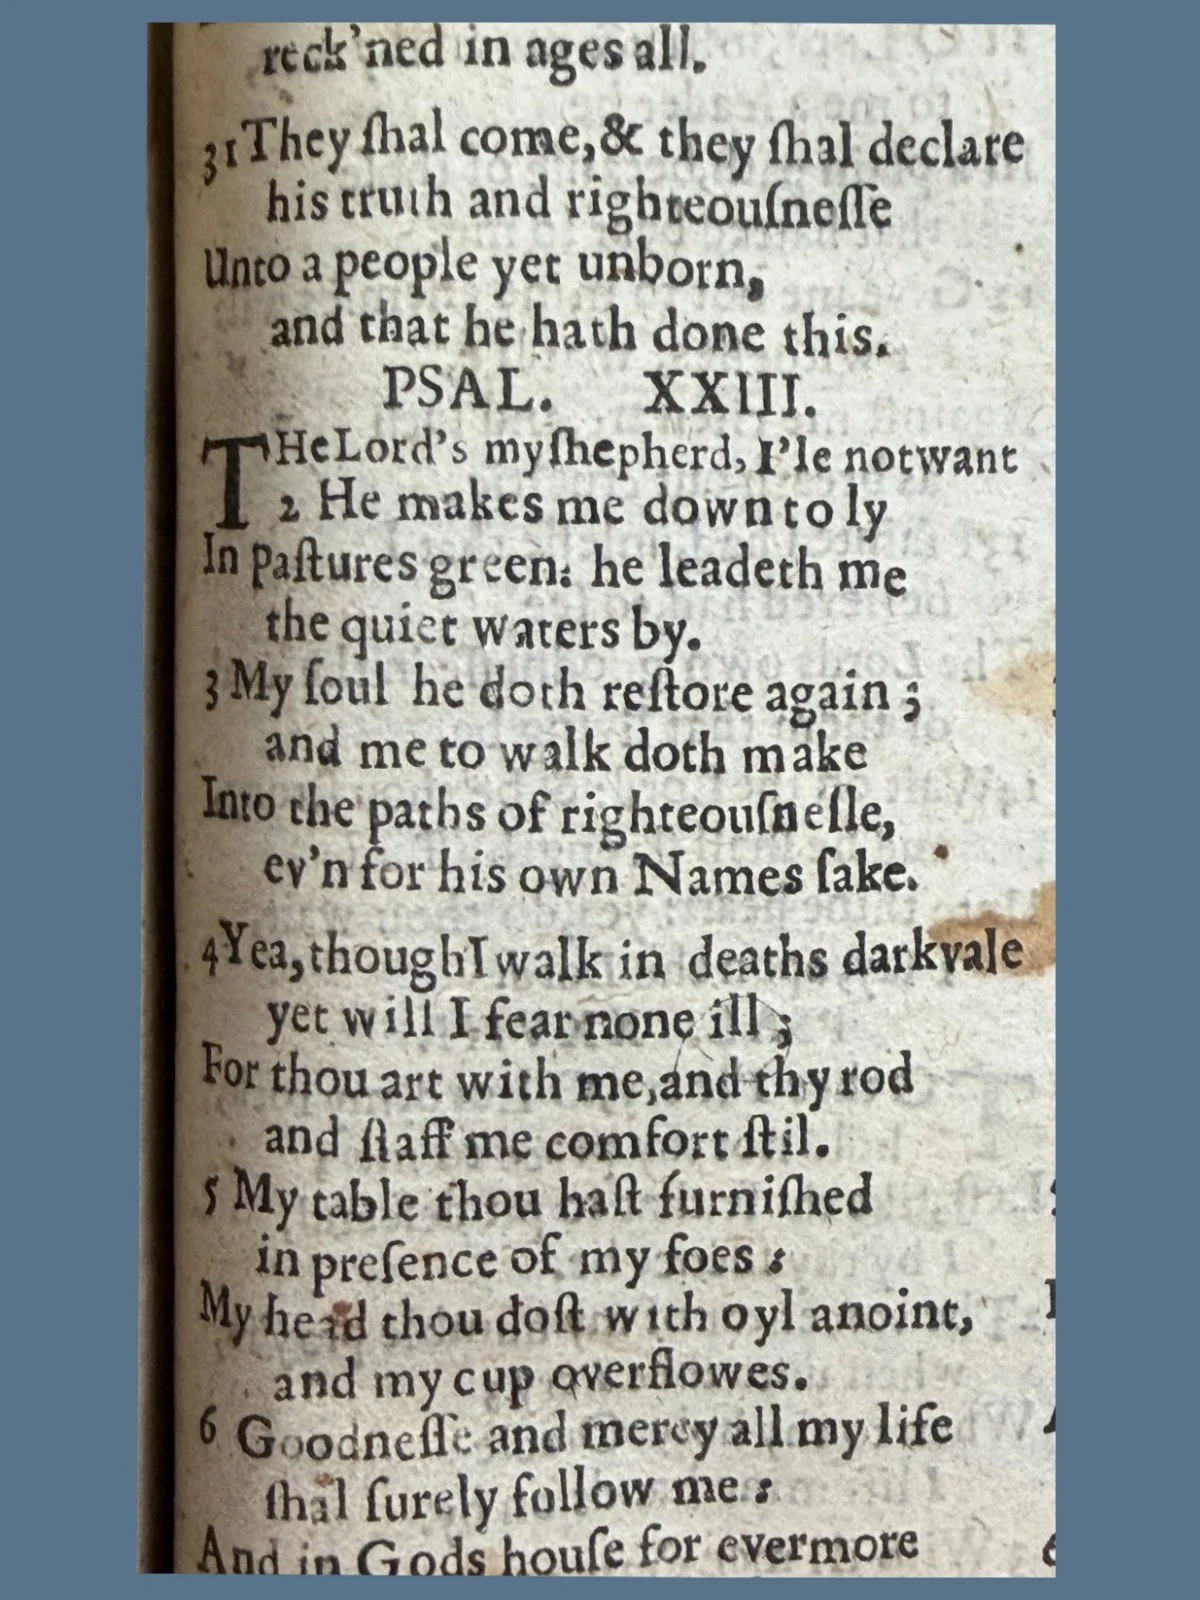 reck'ned in ages all.
31 They ſhal come, & they ſhal declare
his truth and righteouſneſſe
Unto a people yet unborn,
and that he hath done this.
PSAL. XXIII.
THe Lord's my ſhepherd, I'le not want
2 He makes me down to ly
In paſtures green: he leadeth me
the quiet waters by.
3 My ſoul he doth reſtore again ;
and me to walk doth make
Into the paths of righteouſneſſe,
ev'n for his own Names ſake.
4 Yea, though I walk in deaths dark vale
yet will I fear none ill ;
For thou art with me, and thy rod
and ſtaff me comfort ſtil.
5 My table thou haſt furniſhed
in preſence of my foes :
My head thou doſt with oyl anoint,
and my cup overflowes.
6 Goodneſſe and mercy all my life
ſhal ſurely follow me :
And in Gods houſe for evermore